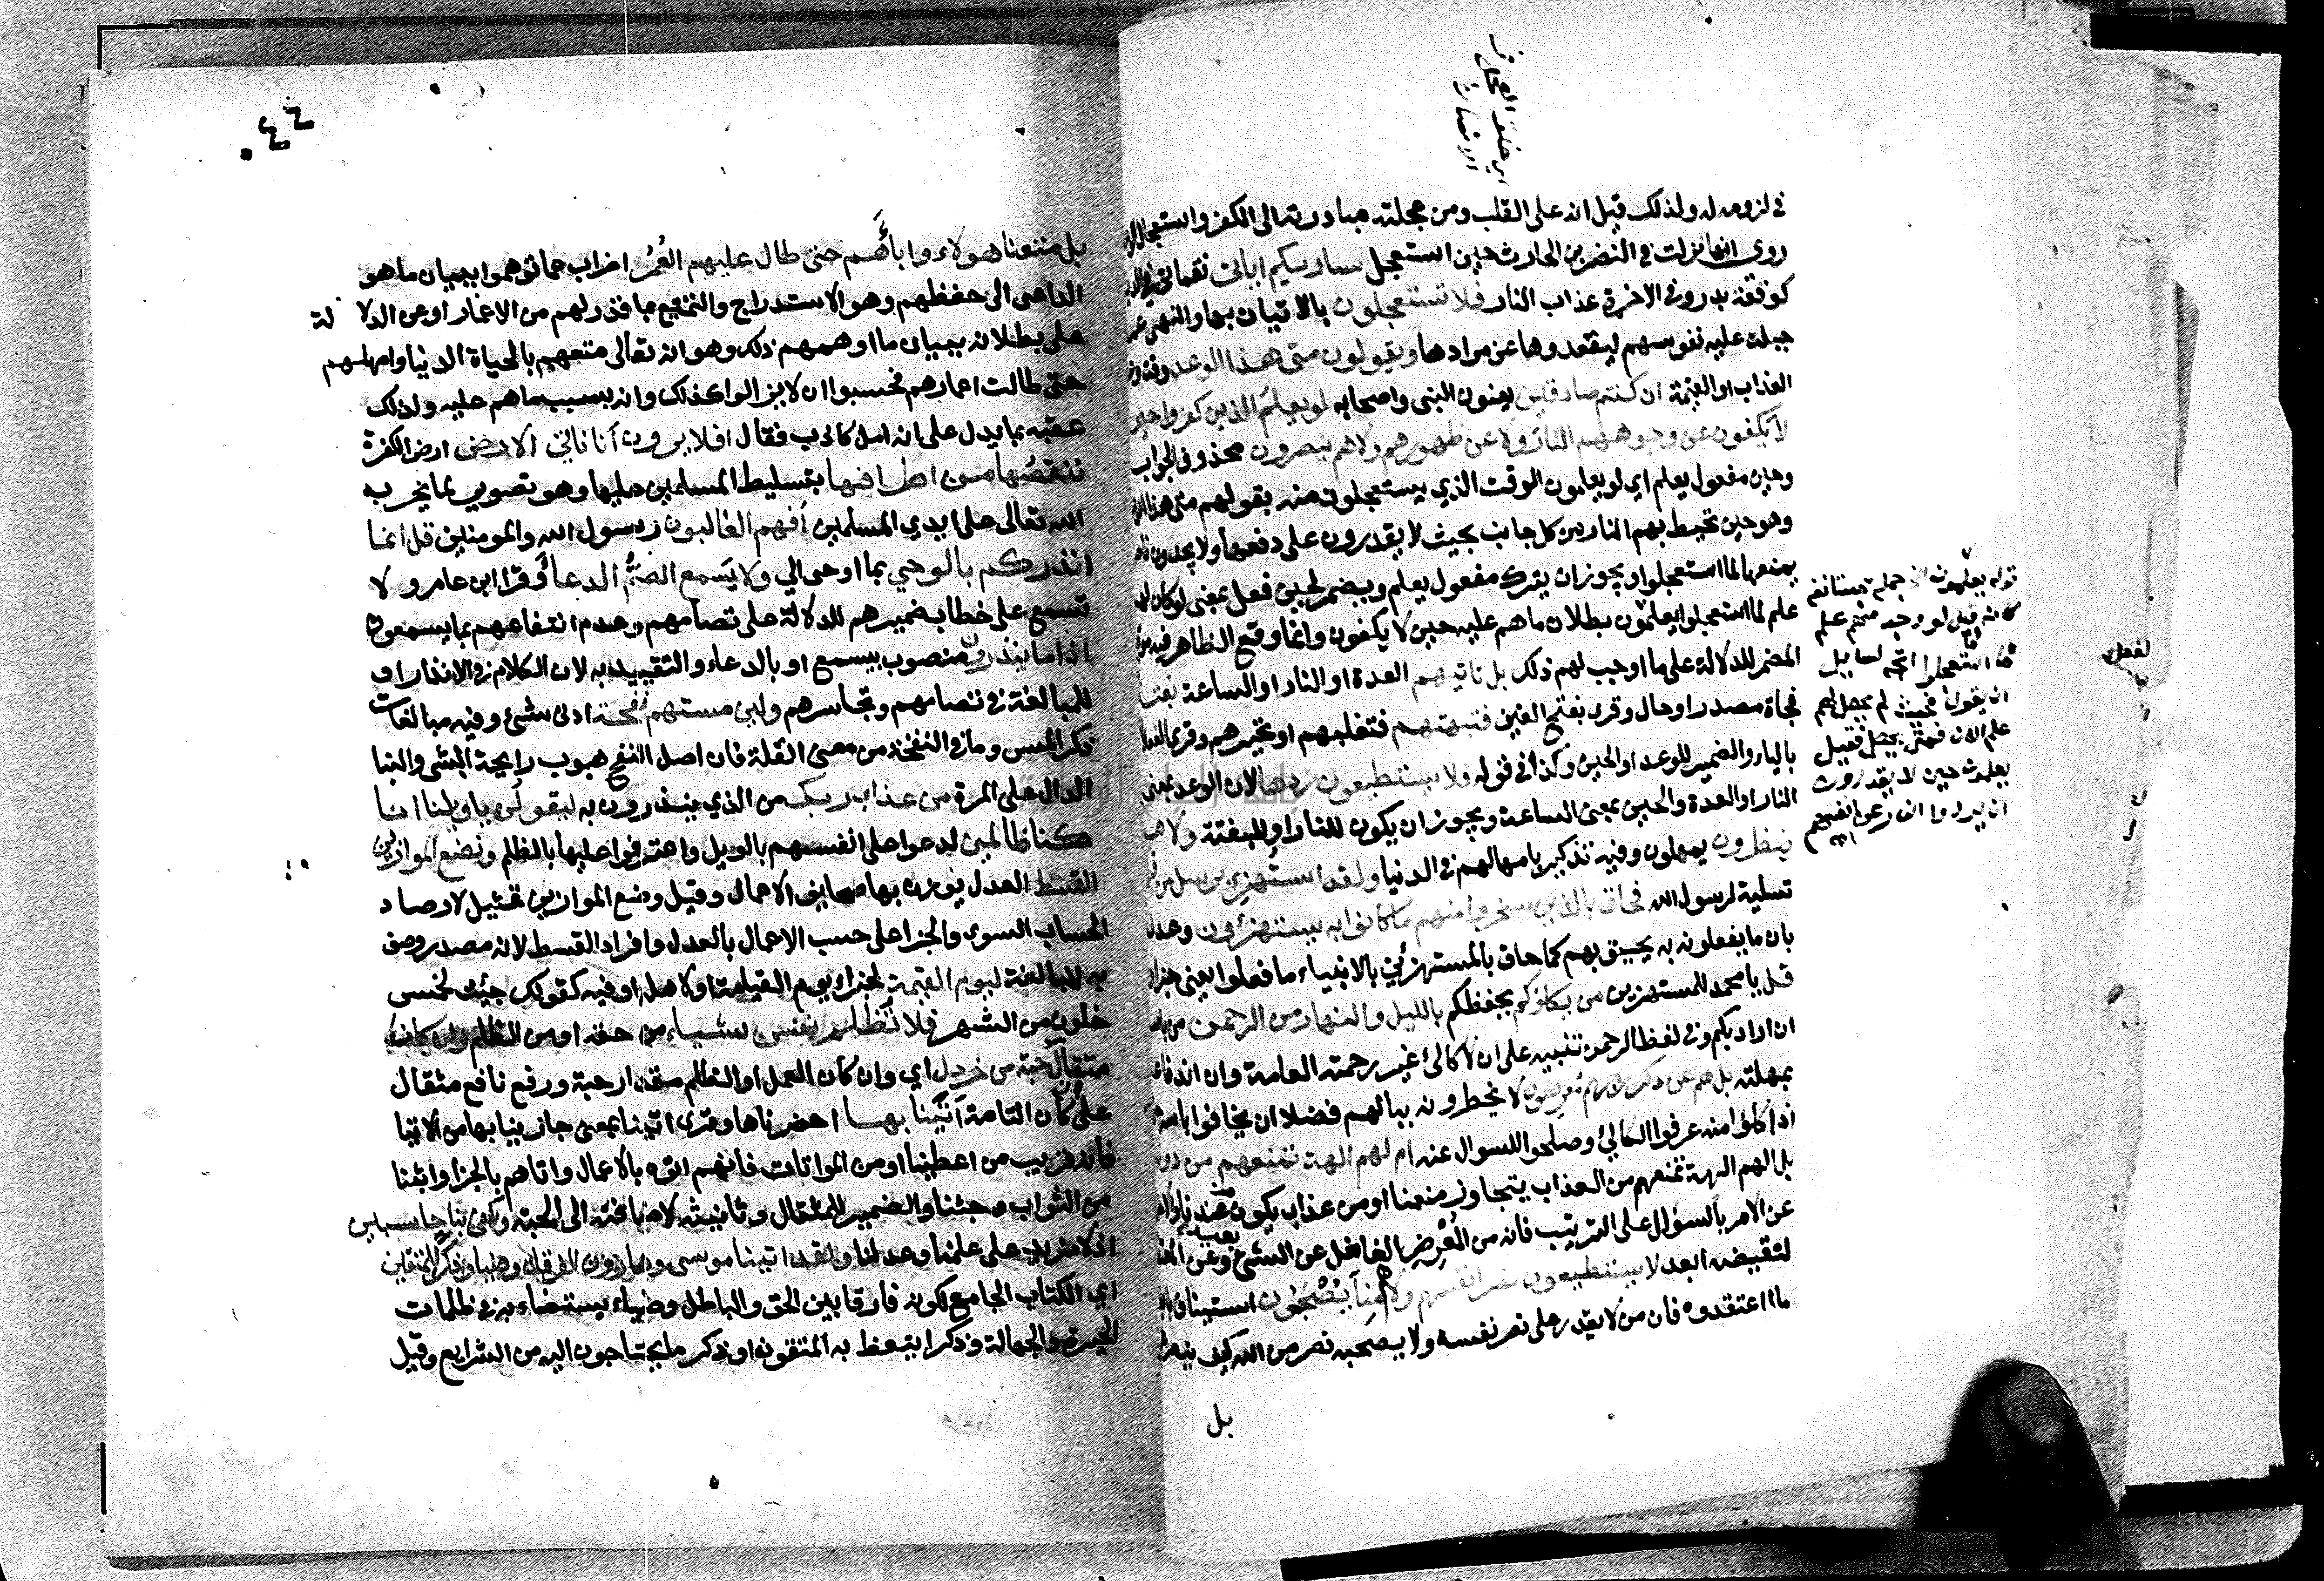 في لزومه له ولذلك قيل انه على القلب ومن عجلته مبادرته الى الكفر واستعجال
روى انها نزلت في النضر بن الحارث حين استعجل ساريكم اياتي نقماتي في
كوقعة بدر وفي الاخرة عذاب النار فلا تستعجلون بالاتيان بها والنهي عما
جبلت عليه نفوسهم ليقعدوها عن مرادها ويقولون متى هذا الوعد وقت
العذاب او القيمة ان كنتم صادقين يعنون النبي واصحابه لو يعلم الذين كفروا حين
لا يكفون عن وجوههم النار ولا عن ظهورهم ولا هم ينصرون محذوف الجواب
وحين مفعول يعلم اي لو يعلمون الوقت الذي يستعجلون منه بقولهم متى هذا
وهو حين تحيط بهم النار من كل جانب بحيث لا يقدرون على دفعها ولا يجدون
يمنعها لما استعجلوا ويجوز ان يترك مفعول يعلم ويضمر لحين فعل بمعنى لو كان لهم
علم لما استعجلوا يعلمون بطلان ما هم عليه حين لا يكفون وانما وضع الظاهر فيه
المضمر للدلالة على ما اوجب لهم ذلك بل تاتيهم العدة او النار او الساعة بغتة
فجاة مصدر او حال وقرى بفتح الغين فتبهتهم فتغلبهم او تحيرهم وقرى
بالياء والضمير للوعد او الحين وكذا في قوله فلا يستطيعون ردها لان الوعد بمعنى
النار او العدة والحين بمعنى الساعة ويجوز ان يكون للنار او للبغتة ولا هم
ينظرون يمهلون وفيه تذكير بامهالهم في الدنيا ولقد استهزى برسل من
تسلية لرسول الله فحاق بالذين سخروا منهم ما كانوا به يستهزئون وعد
بان ما يفعلونه به يحيق بهم كما حاق بالمستهزئين بالانبياء ما فعلوا يعني جزاءه
قل يا محمد للمستهزين من يكلؤكم يحفظكم بالليل والنهار من الرحمن من
ان اراد بكم وفي لفظ الرحمن تنبيه على ان لا كالئ غير رحمته العامة وان اندفاعه
بمهلته بل هم عن ذكر ربهم معرضون لا يخطرونه ببالهم فضلا ان يخافوا باسه
اذا كلؤا منه عرفوا الكالئ وصلحوا للسوال عنه ام لهم الهة تمنعهم من دوننا
بل الهم الهة تمنعهم من العذاب يتجاوز منعنا او من عذاب يكون من عندنا
عن الامر بالسؤال على الترتيب فانه من المعرض الغافل عن الشئ بعيد وعن
لنقيضه ابعد لا يستطيعون نصر انفسهم ولا هم منا يصحبون استيناف
ما اعتقدوه فان من لا يقدر على نصر نفسه ولا يصحبه نصر من الله كيف ينصر
بل
قوله يعلمون الخ جملة مستانفة
كانه قيل لو وجد منهم علم
لما استعجلوا اتجه لسايل
ان يقول فحيث لم يحصل لهم
علم الان فمتى يحصل فقيل
يعلمون حين لا يقدرون
ان يردوا النار عن انفسهم
اهـ
بل متعنا هولاء واباءهم حتى طال عليهم العمر اضراب عما توهموا ببيان ما هو
الداعي الى حفظهم وهو الاستدراج والتمتيع بما قدر لهم من الاعمار او عن الدلالة
على بطلانه ببيان ما اوهمهم ذلك وهو انه تعالى متعهم بالحياة الدنيا وامهلهم
حتى طالت اعمارهم فحسبوا ان لا يزالوا كذلك وانه بسبب ما هم عليه ولذلك
عقبه بما يدل على انه امل كاذب فقال افلا يرون أنا ناتي الارض ارض الكفرة
ننقصها من اطرافها بتسليط المسلمين عليها وهو تصوير لما يخرب
الله تعالى على ايدي المسلمين أفهم الغالبون رسول الله والمومنين قل انما
انذركم بالوحي بما اوحى الي ولا يسمع الصم الدعاء وقرا ابن عامر ولا
تسمع على خطاب ضميرهم للدلالة على تصامهم وعدم انتفاعهم بما يسمعون
اذا ما ينذرون منصوب بيسمع او بالدعاء والتقييد به لان الكلام في الانذار او
للمبالغة في تصامهم وتجاسرهم ولين مستهم نفحة ادنى شئ وفيه مبالغات
ذكر المس وما في النفخة من معنى القلة فان اصل النفح هبوب رايحة الشى والبنا
الدال على المرة من عذاب ربك من الذي ينذرون به ليقولن يا ويلنا انا
كنا ظالمين لدعوا على انفسهم بالويل واعترفوا عليها بالظلم ونضع الموازين
القسط العدل يوزن بها صحايف الاعمال وقيل وضع الموازين تمثيل لارصاد
الحساب السوى والجزا على حسب الاعمال بالعدل وافراد القسط لانه مصدر وصف
به للمبالغة ليوم القيمة لجزاء يوم القيامة او لاهله او فيه كقولك جئت لخمس
خلون من الشهر فلا تظلم نفس شيا من حقه او من الظلم وان كان
مثقال حبة من خردل اي وان كان العمل او الظلم مقدار حبة ورفع نافع مثقال
على كان التامة أتينا بها احضرناها وقرى اتينا بمعنى جازينا بها من الاتيا
فانه قريب من اعطينا او من المواتات فانهم اتوه بالاعمال واتاهم بالجزا واثبنا
من الثواب وجئنا والضمير للمثقال وتانيثه لاضافته الى الحبة وكفى بنا حاسبين
اذ لا مزيد على علمنا وعدلنا ولقد اتينا موسى وهارون الفرقان وضيا وذكرا للمتقين
اي الكتاب الجامع لكونه فارقا بين الحق والباطل وضياء يستضاء به في ظلمات
الحيرة والجهالة وذكرا يتعظ به المتقون او ذكر ما يحتاجون اليه من الشرايع وقيل